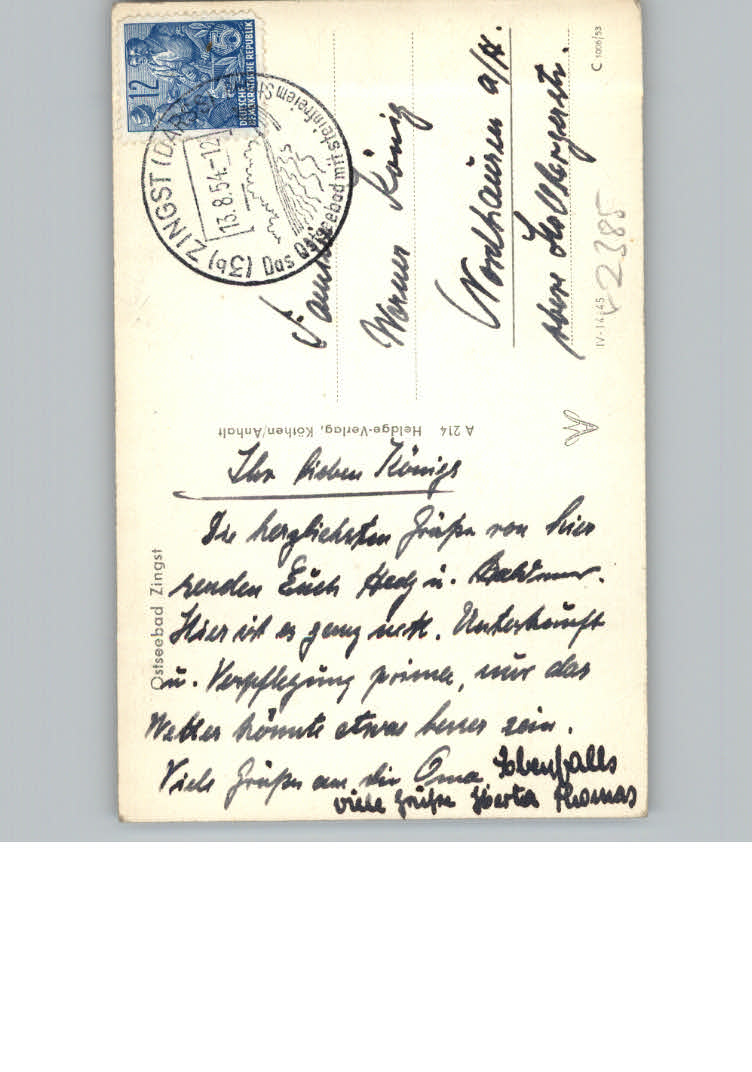 12
DEUTSCHE
DEMOKRATISCHE REPUBLIK
(3b) ZINGST (DARSS)
13.8.54.-12
das Ostseebad mit steinfreiem
Familie
Werner König
Nordhausen a/H.
obere
C 1006/53
IV-14-45
2385
A 214 Heldge-Verlag, Köthen/Anhalt
Ostseebad Zingst
Ihr lieben Königs
Die herzlichsten Grüße von hier
senden Euch Hedj u.
Hier ist es ganz nett. Unterkunft
u. Verpflegung prima, nur das
Wetter könnte etwas besser sein.
Viele Grüße an die Oma
Ebenfalls
viele Grüße Herta Thomas